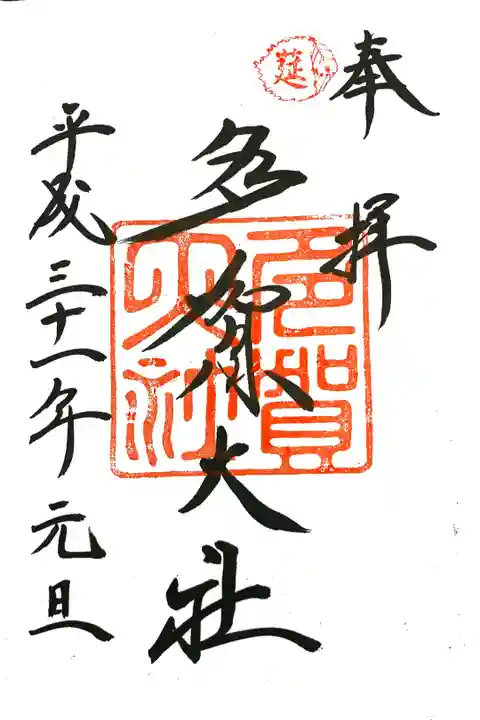 奉拝
莚
多賀大社
多賀大社
平成三十一年元旦